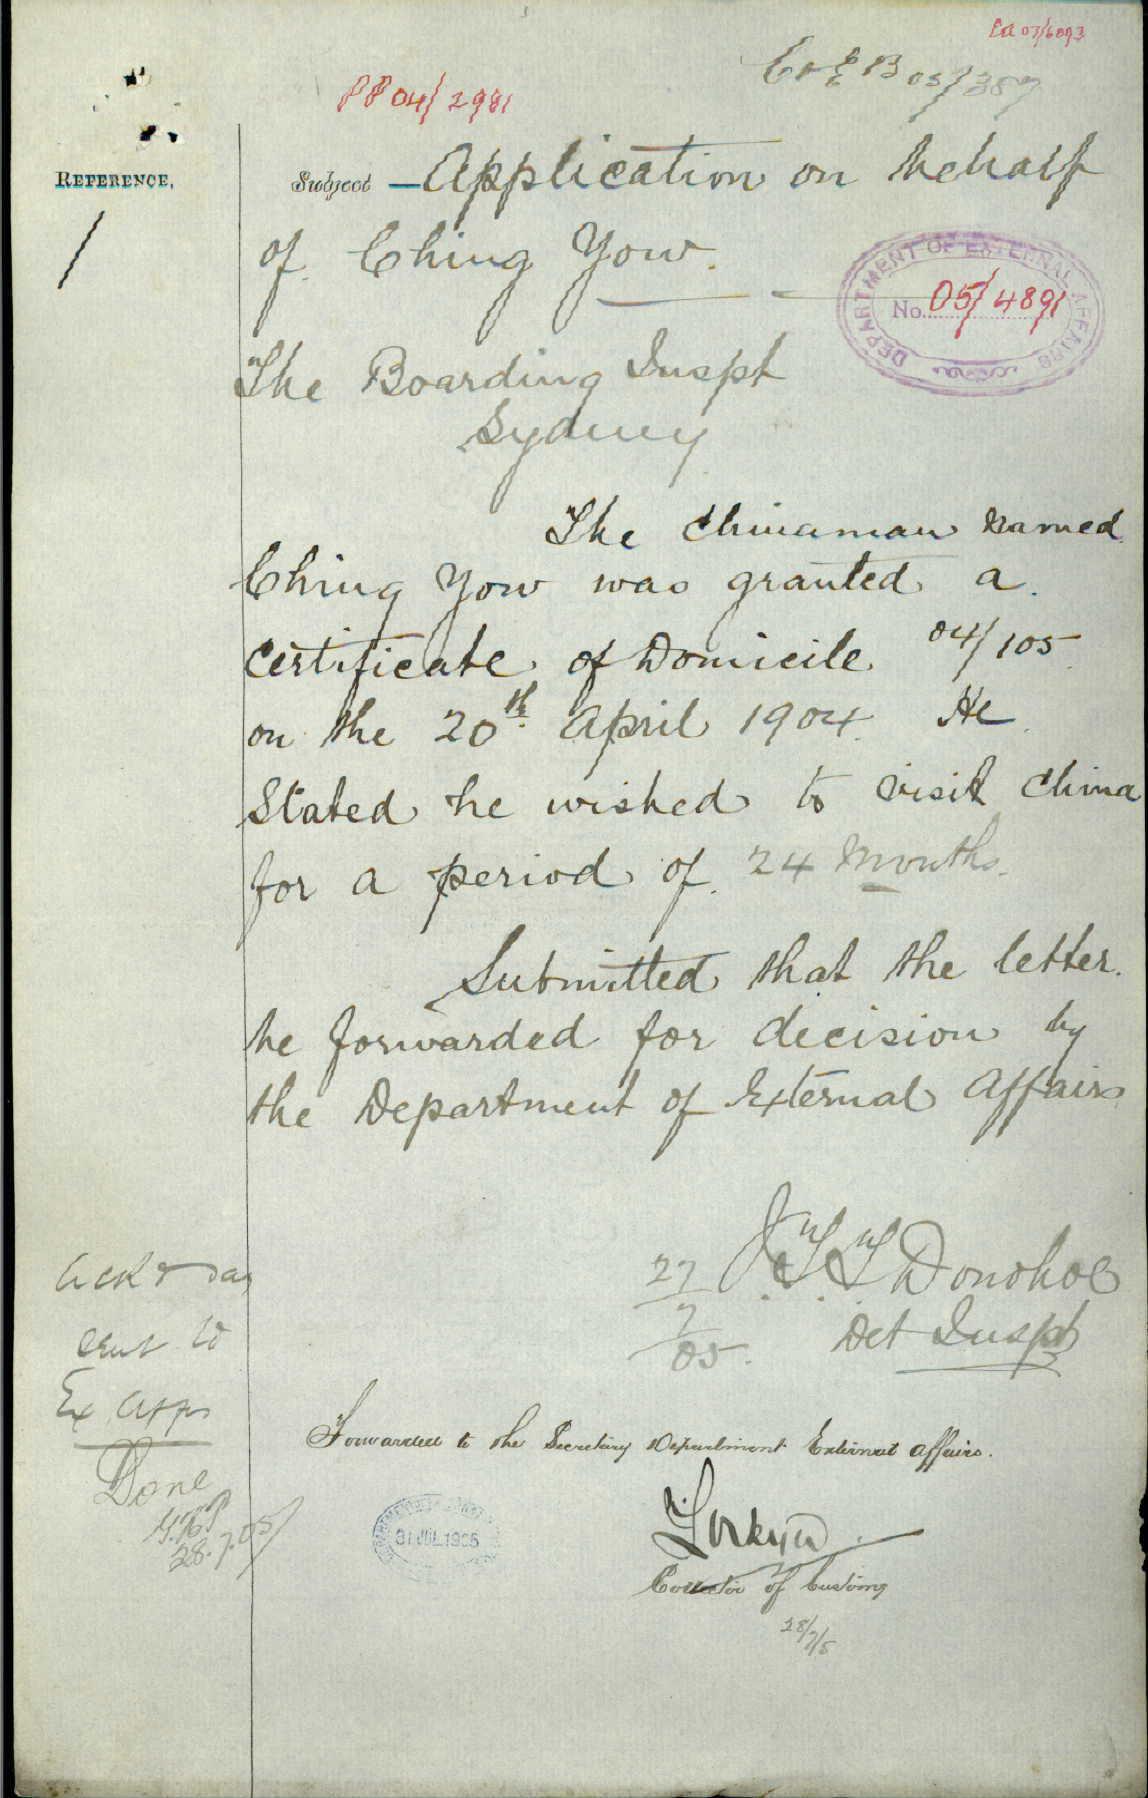 Ea 07/6093
C & E B 05/387
PP 04/2981
REFERENCE.
Subject — Application on behalf
of Ching Yow.
DEPARTMENT OF EXTERNAL AFFAIRS
No. 05/4891
The Boarding Inspt
Sydney
The Chinaman named
Ching Yow was granted a
Certificate of Domicile 04/105
on the 20th April 1904. He
Stated he wished to visit China
for a period of 24 Months.
Submitted that the letter
be forwarded for decision by
the Department of External Affairs
J. T. T. Donohoe
27/7/05.
Det Inspt
Ack &
sent to
Ex Affrs
Done
28.7.05
Forwarded to the Secretary Department External Affairs.
31 JUL 1905
Collector of Customs
28/7/5